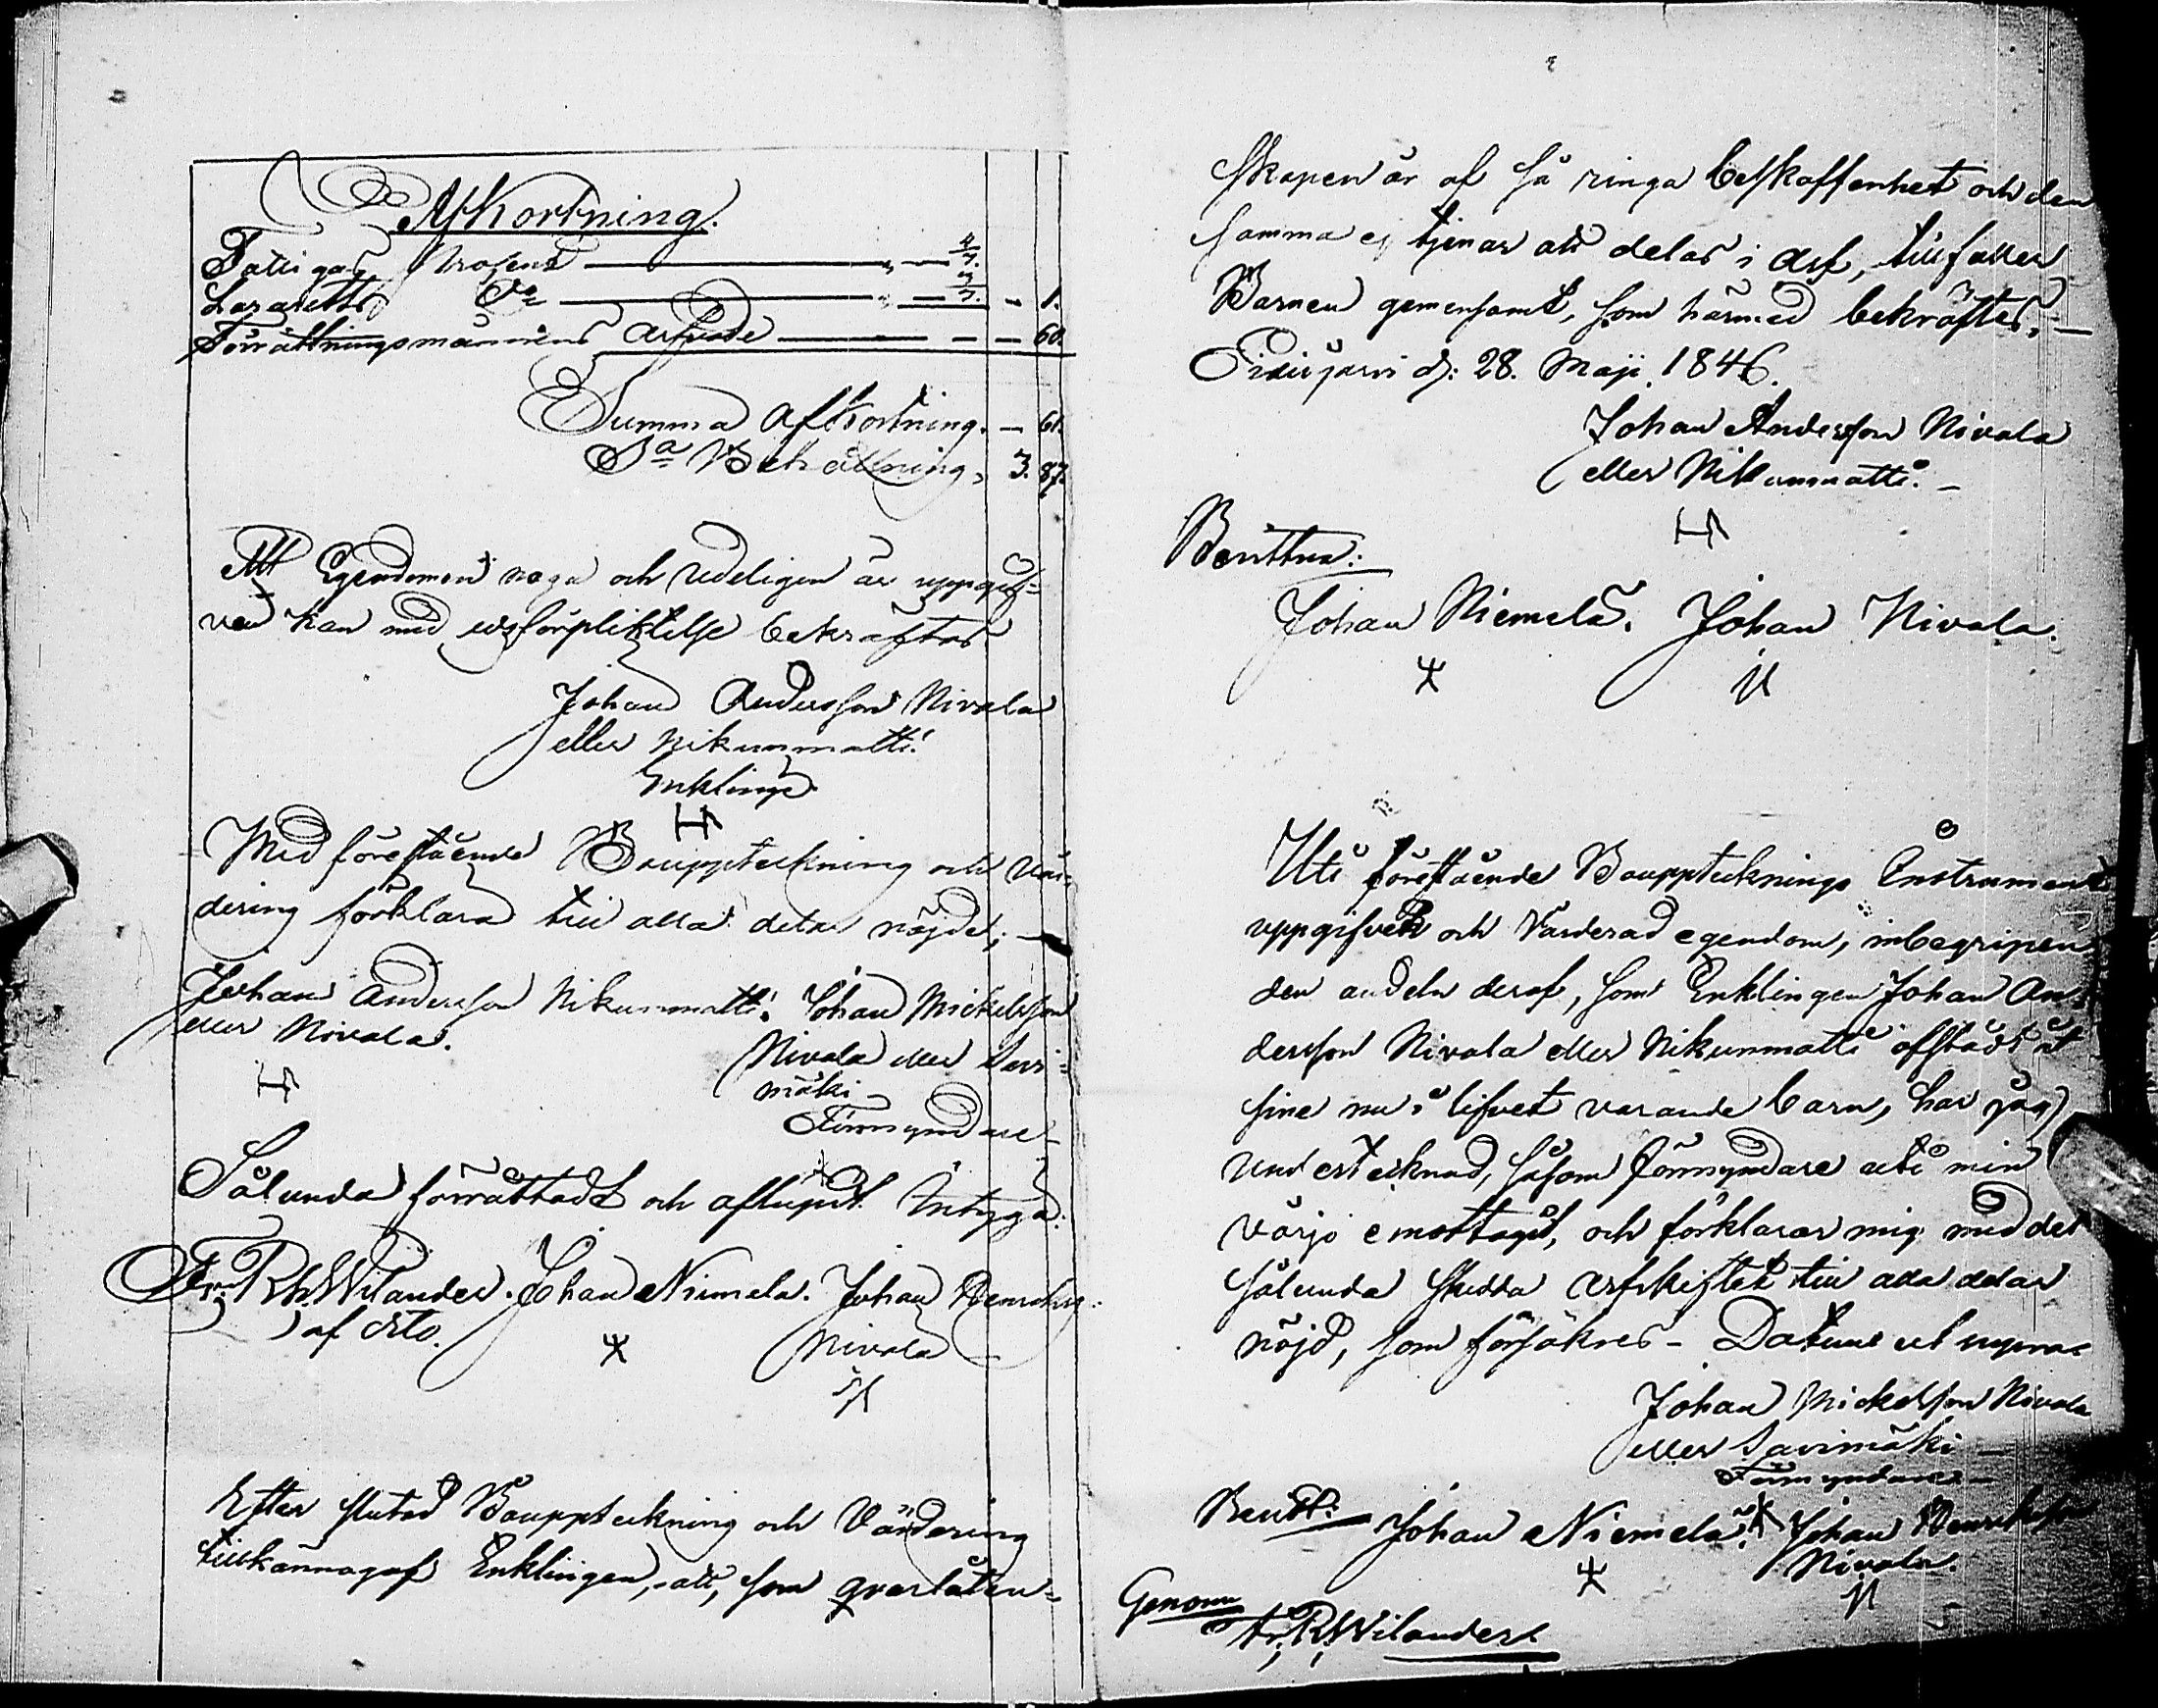 Afkortning.
Fattigas Procent — " — 4/7.
Lazaretts Do — " — 3/7. - 1.
Förrättningsmännens Arfvode — - — 60.
Summa Afkortning. — 61.
Sa Behållning, 3. 87.
Att Egendomen noga och redeligen är uppgif-
ven kan med edsförpliktelse bekräftas
Johan Andersson Nivala
eller Nikunmatti
Enkling
Med förestående Bouppteckning och Vär-
dering förklara till alla delar nöjde; —
Johan Andersson Nikunmatti. Johan Mickelsson
eller Nivala.
Nivala eller Savi-
mäki
Förmyndare
Sålunda förrättadt och aflupit Intyga:
Fr. Rh. Wilander. Johan Niemelä. Johan Henriks:
af Sto.
Nivala
Efter slutad Bouppteckning och Värdering
tillkännagaf Enklingen, att, som qvarlåten-
skapen är af så ringa beskaffenhet och den
samma ej tjenar att delas i Arf, tillfaller
Barnen gemensamt, som härmed bekräftas, —
Pidisjärvi d: 28. Maji 1846.
Johan Andersson Nivala
eller Nikunmatti. —
Bevittna:
Johan Niemelä. Johan Nivala.
Uti förestående Bouppteknings Instrument
uppgifven och Värderad egendom, inbegripen
den andeln deraf, som Enklingen Johan An-
dersson Nivala eller Nikunmatti afstådt åt
sine nu i lifvet varande barn, har jag
undertecknad, såsom förmyndare uti min
värjo emottagit, och förklarar mig med det
sålunda skedda Arfskiftet till alla delar
nöjd, som försäkres - Datum ut supra
Johan Mickelsson Nivala
eller Savimäki —
Förmyndare —
Bevitt: Johan Niemelä. Johan Henriksson
Nivala.
Genom
Fr. Rh. Wilander.